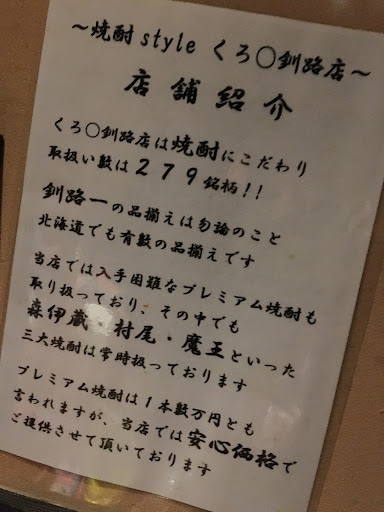 ～焼酎style くろ〇釧路店～
店舗紹介
くろ〇釧路店は焼酎にこだわり
取扱い数は２７９銘柄！！
釧路一の品揃えは勿論のこと
北海道でも有数の品揃えです
当店では入手困難なプレミアム焼酎も
取り扱っており、その中でも
森伊蔵・村尾・魔王といった
三大焼酎は常時扱っております
プレミアム焼酎は１本数万円とも
言われますが、当店では安心価格で
ご提供させて頂いております